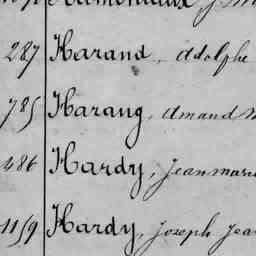 287 Harand, Adolphe
785 Harang, Amand
486 Hardy, Jean marie
1159 Hardy, Joseph Jean